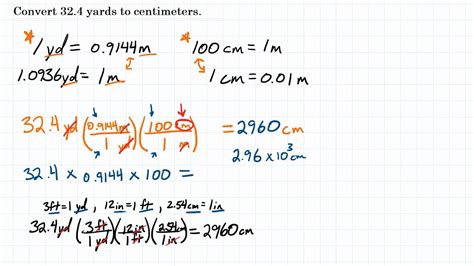 Convert 32.4 yards to centimeters.
* 1 yd = 0.9144 m
* 100 cm = 1 m
1.0936 yd = 1 m
1 cm = 0.01 m
32.4 yd (0.9144 m / 1 yd) (100 cm / 1 m) = 2960 cm
2.96 x 10³ cm
32.4 x 0.9144 x 100 =
3 ft = 1 yd , 12 in = 1 ft , 2.54 cm = 1 in
32.4 yd (3 ft / 1 yd) (12 in / 1 ft) (2.54 cm / 1 in) = 2960 cm